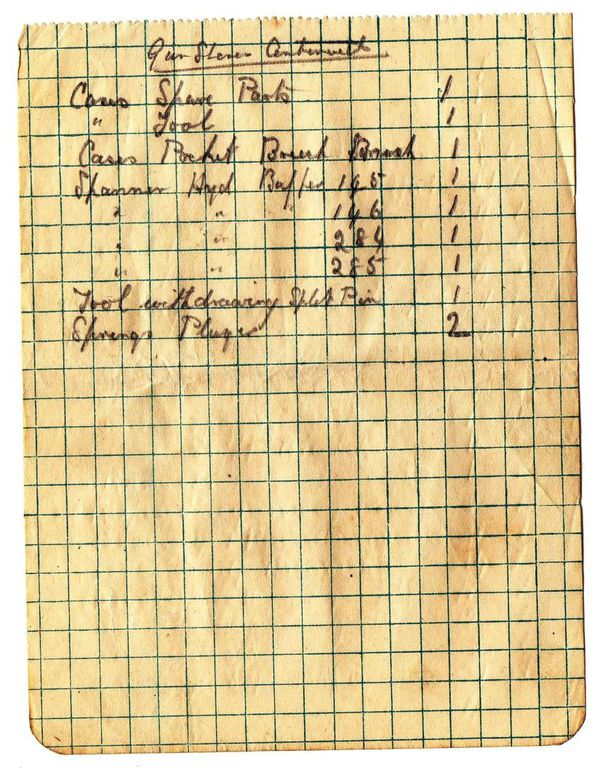 Gun Stores
Cases Spare Parts 1
" Tool 1
Cases Pocket Breech Brush 1
Spanner Hyd Buffer 195 1
" " 196 1
" " 284 1
" " 285 1
Tool withdrawing Split Pin 1
Springs Plunger 2